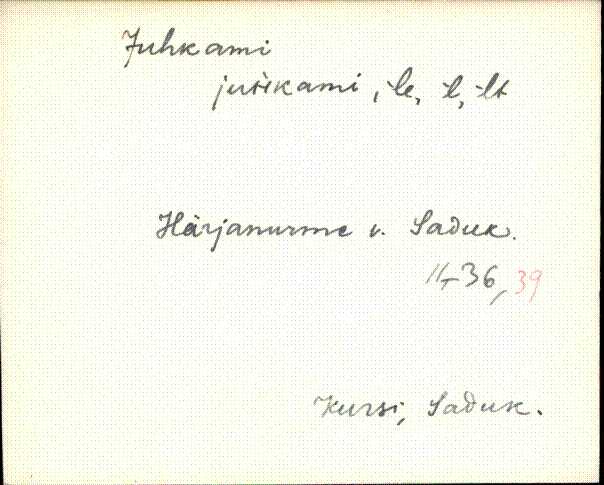 Juhkami
juhkami, -le, -l, -lt
Härjanurme v. Saduk.
36, 39
Kursi, Saduk.